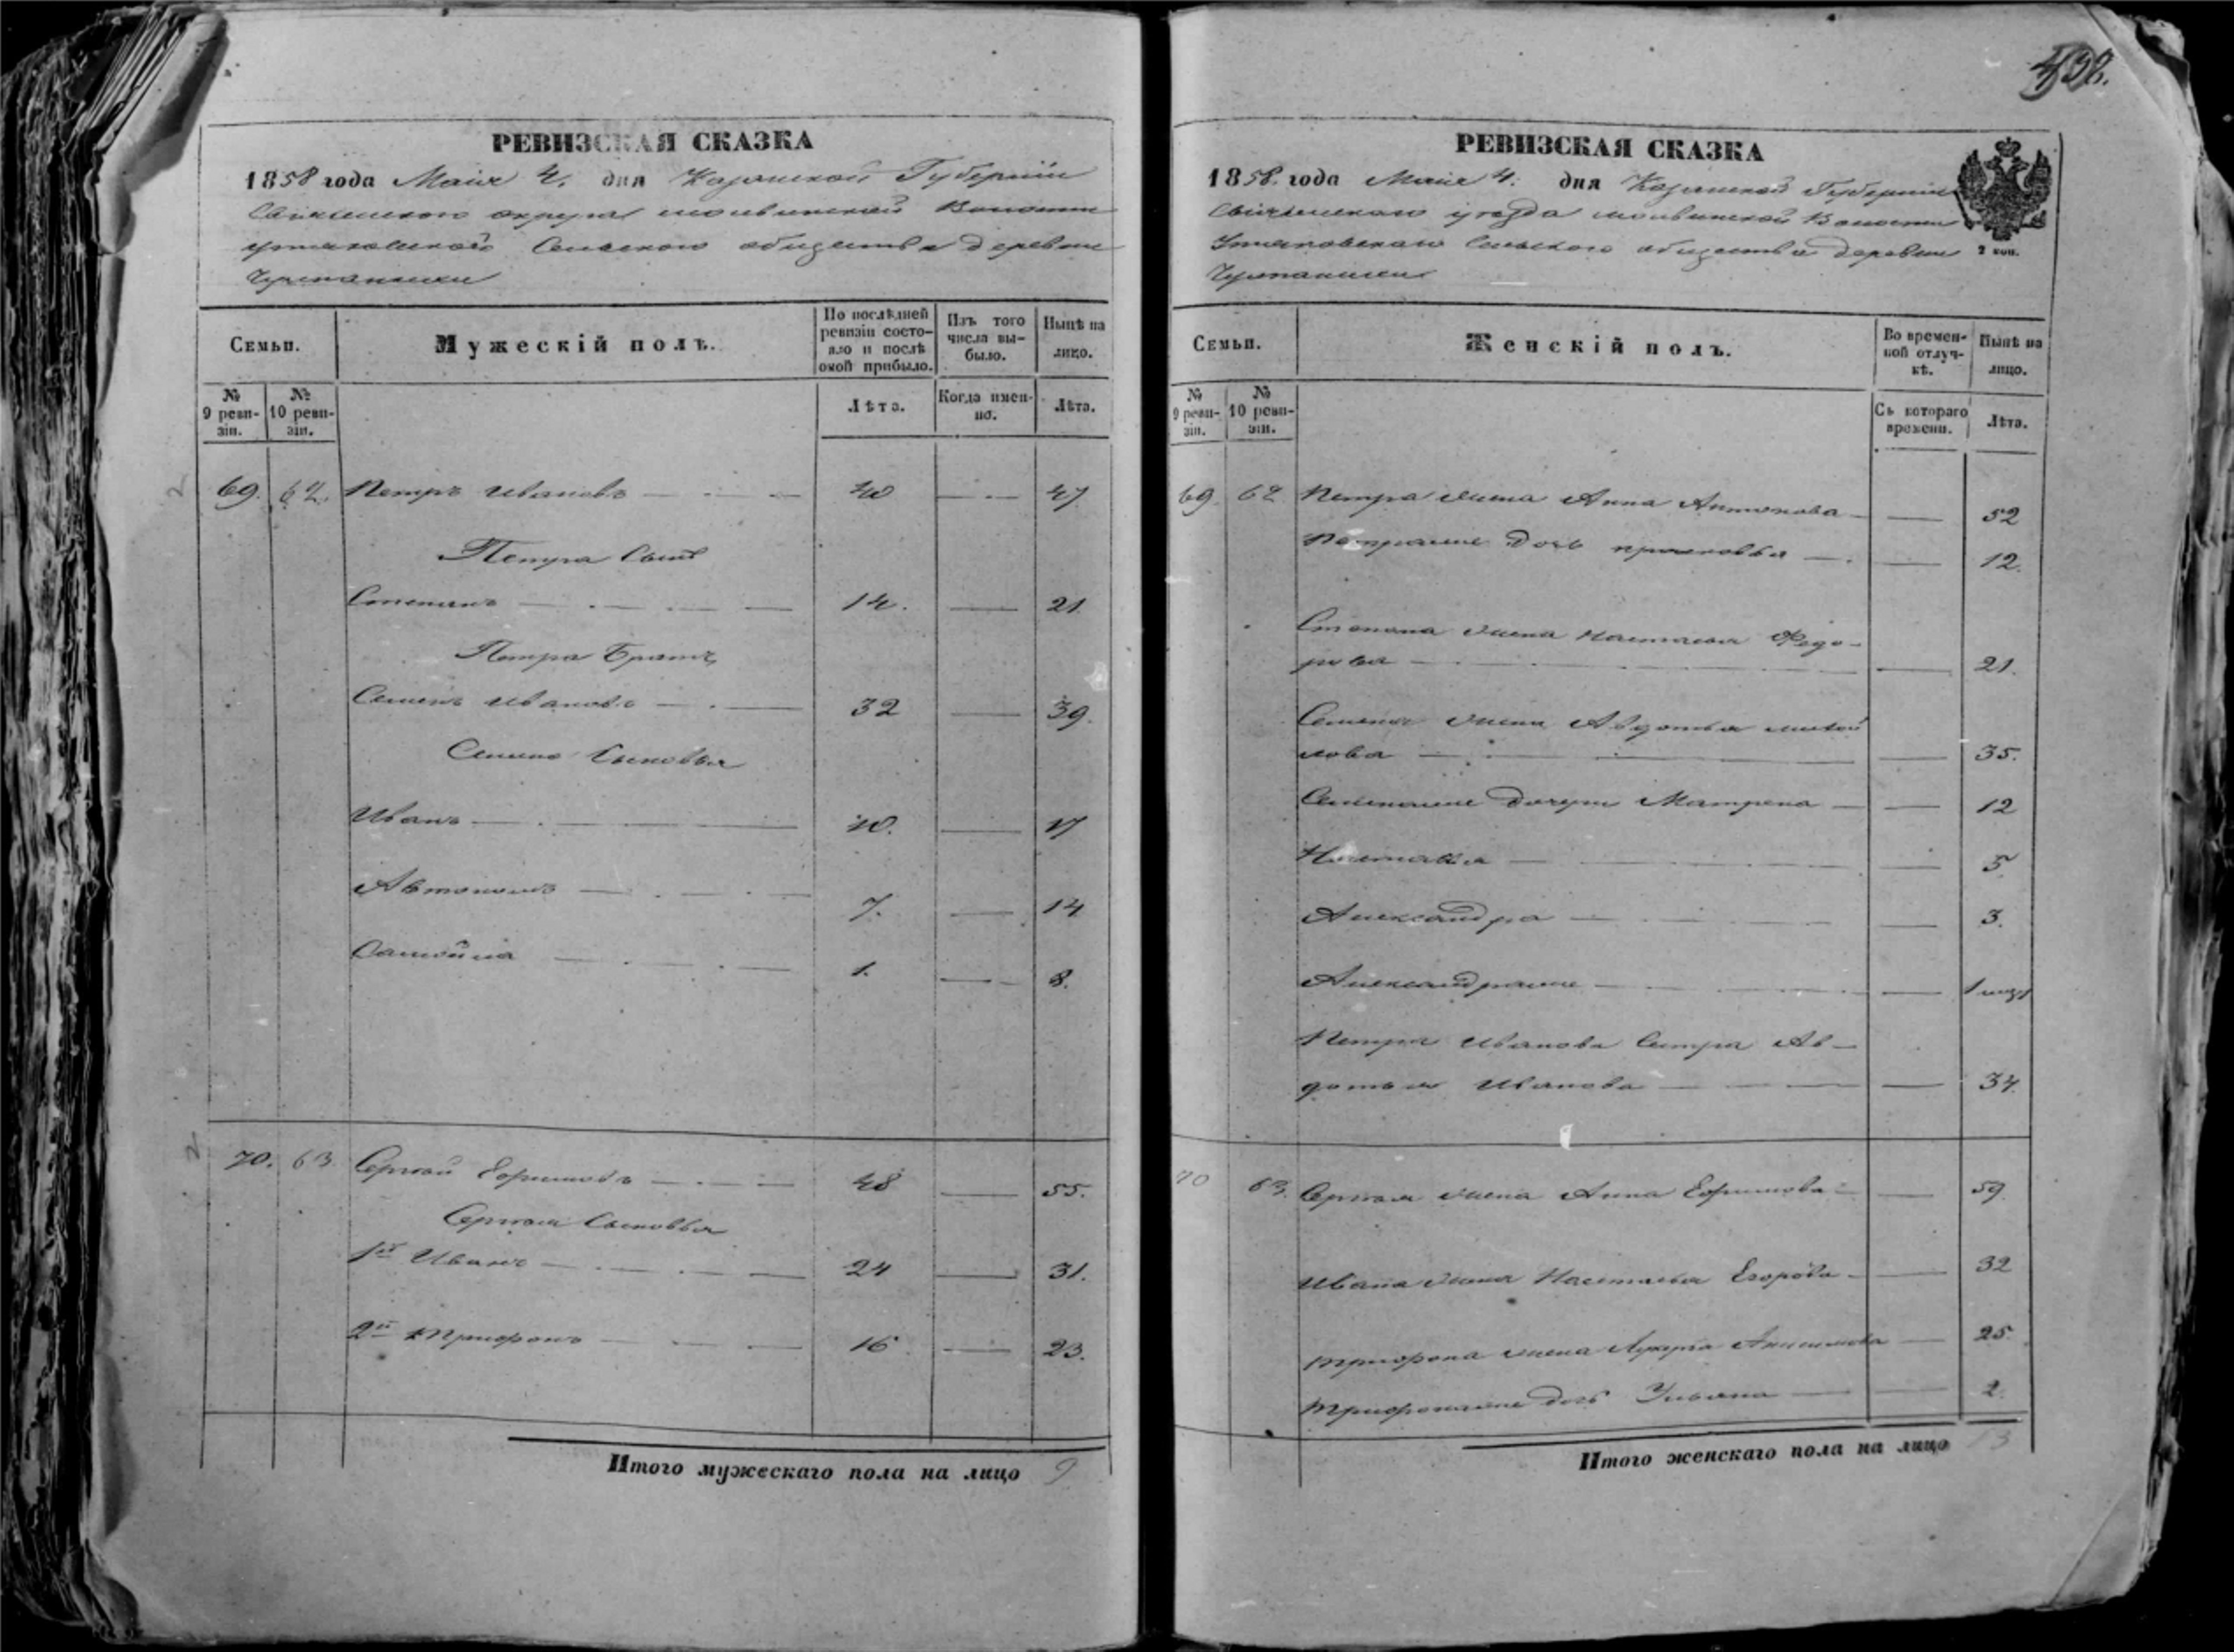 438.
РЕВИЗСКАЯ СКАЗКА
1858 года Маія 4. дня Казанской Губерніи
Свіяжскаго округа Волости
Сельскаго общества деревни
Семьи.
Мужескій полъ.
По послѣдней ревизіи состояло и послѣ оной прибыло.
Изъ того числа выбыло.
Нынѣ на лицо.
№ 9 ревизіи.
№ 10 ревизіи.
Лѣта.
Когда именно.
Лѣта.
2
69. 62. Петръ Ивановъ 40 47
Петра Сынъ
Степанъ 14. 21
Петра Братъ
Семенъ Ивановъ 32 39.
Семена Сыновья
Иванъ 10. 17
Автономъ 7. 14
Самойла 1. 8.
2
70. 63 Сергѣй Ефимовъ 48 55.
Сергѣя Сыновья
1й Иванъ 24 31.
2й Трифонъ 16. 23.
Итого мужескаго пола на лицо 9
РЕВИЗСКАЯ СКАЗКА
1858. года Маія 4. дня Казанской Губерніи
Свіяжскаго уѣзда Волости
Сельскаго общества деревни
2 коп.
Семьи.
Женскій полъ.
Во временной отлучкѣ.
Нынѣ на лицо.
№ 9 ревизіи.
№ 10 ревизіи.
Съ котораго времени.
Лѣта.
69. 62 Петра жена Анна Антонова 52
дочь Прасковья 12.
Степана жена Настасья Федо-
рова 21.
Семена жена Авдотья
лова 35.
дочери Матрена 12
Настасья 5
Александра 3.
1
Петра Иванова Сестра Ав-
дотья Иванова 34.
70 63. Сергѣя жена Анна Ефимова 59.
Ивана жена Настасья Егорова 32
Трифона жена Лукерья Анисимова 25.
дочь Ульяна 2.
Итого женскаго пола на лицо 13